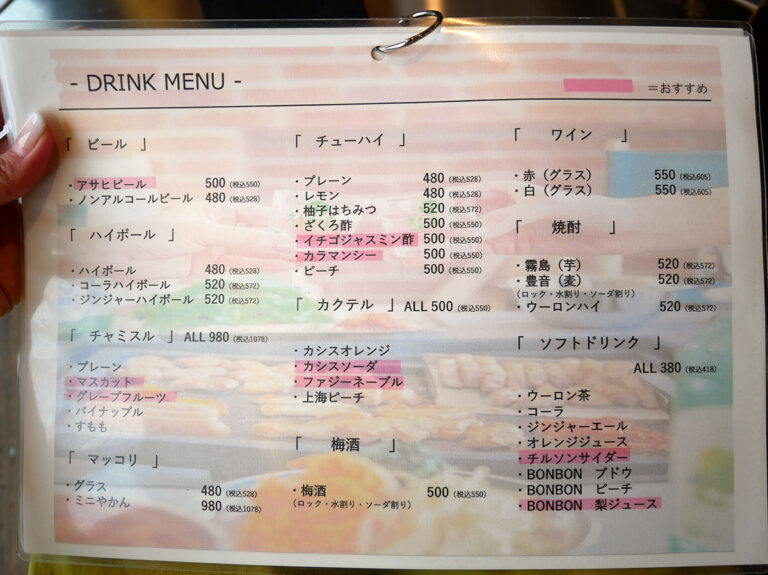 - DRINK MENU -
=おすすめ
「 ビール 」
・アサヒビール 500 (税込550)
・ノンアルコールビール 480 (税込528)
「 ハイボール 」
・ハイボール 480 (税込528)
・コーラハイボール 520 (税込572)
・ジンジャーハイボール 520 (税込572)
「 チャミスル 」 ALL 980 (税込1078)
・プレーン
・マスカット
・グレープフルーツ
・パイナップル
・すもも
「 マッコリ 」
・グラス 480 (税込528)
・ミニやかん 980 (税込1078)
「 チューハイ 」
・プレーン 480 (税込528)
・レモン 480 (税込528)
・柚子はちみつ 520 (税込572)
・ざくろ酢 500 (税込550)
・イチゴジャスミン酢 500 (税込550)
・カラマンシー 500 (税込550)
・ピーチ 500 (税込550)
「 カクテル 」 ALL 500 (税込550)
・カシスオレンジ
・カシスソーダ
・ファジーネーブル
・上海ピーチ
「 梅酒 」
・梅酒 500 (税込550)
(ロック・水割り・ソーダ割り)
「 ワイン 」
・赤（グラス） 550 (税込605)
・白（グラス） 550 (税込605)
「 焼酎 」
・霧島（芋） 520 (税込572)
・豊音（麦） 520 (税込572)
(ロック・水割り・ソーダ割り)
・ウーロンハイ 520 (税込572)
「 ソフトドリンク 」
ALL 380 (税込418)
・ウーロン茶
・コーラ
・ジンジャーエール
・オレンジジュース
・チルソンサイダー
・BONBON ブドウ
・BONBON ピーチ
・BONBON 梨ジュース